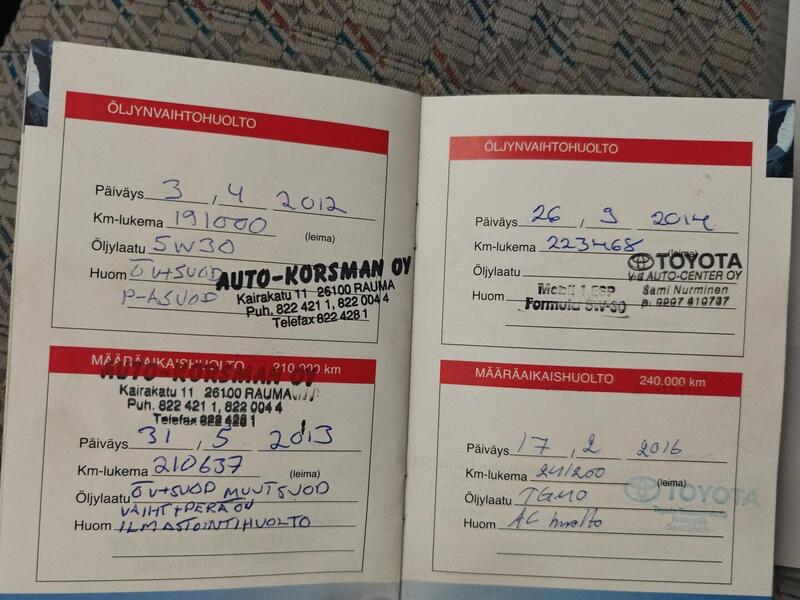 ÖLJYNVAIHTOHUOLTO
Päiväys 3 , 4 2012
Km-lukema 191000
(leima)
Öljylaatu 5W30
Huom ÖV+SUOD
P-ASUOD
AUTO-KORSMAN OY
Kairakatu 11 26100 RAUMA
Puh. 822 421 1, 822 004 4
Telefax 822 428 1
MÄÄRÄAIKAISHUOLTO 210.000 km
AUTO-KORSMAN OY
Kairakatu 11 26100 RAUMA
Puh. 822 421 1, 822 004 4
Telefax 822 428 1
Päiväys 31 , 5 2013
Km-lukema 210637
(leima)
Öljylaatu ÖV+SUOD MUUTSUOD
VAIHT+PERÄ ÖV
Huom ILMASTOINTIHUOLTO
ÖLJYNVAIHTOHUOLTO
Päiväys 26 , 9 2014
Km-lukema 223468
(leima)
Öljylaatu
Huom Mobil 1 ESP
Formula 5W-30
TOYOTA
V-S AUTO-CENTER OY
Sami Nurminen
p. 0207 810737
MÄÄRÄAIKAISHUOLTO 240.000 km
Päiväys 17 , 2 2016
Km-lukema 241200
(leima)
Öljylaatu TGMO
Huom AC huolto
TOYOTA